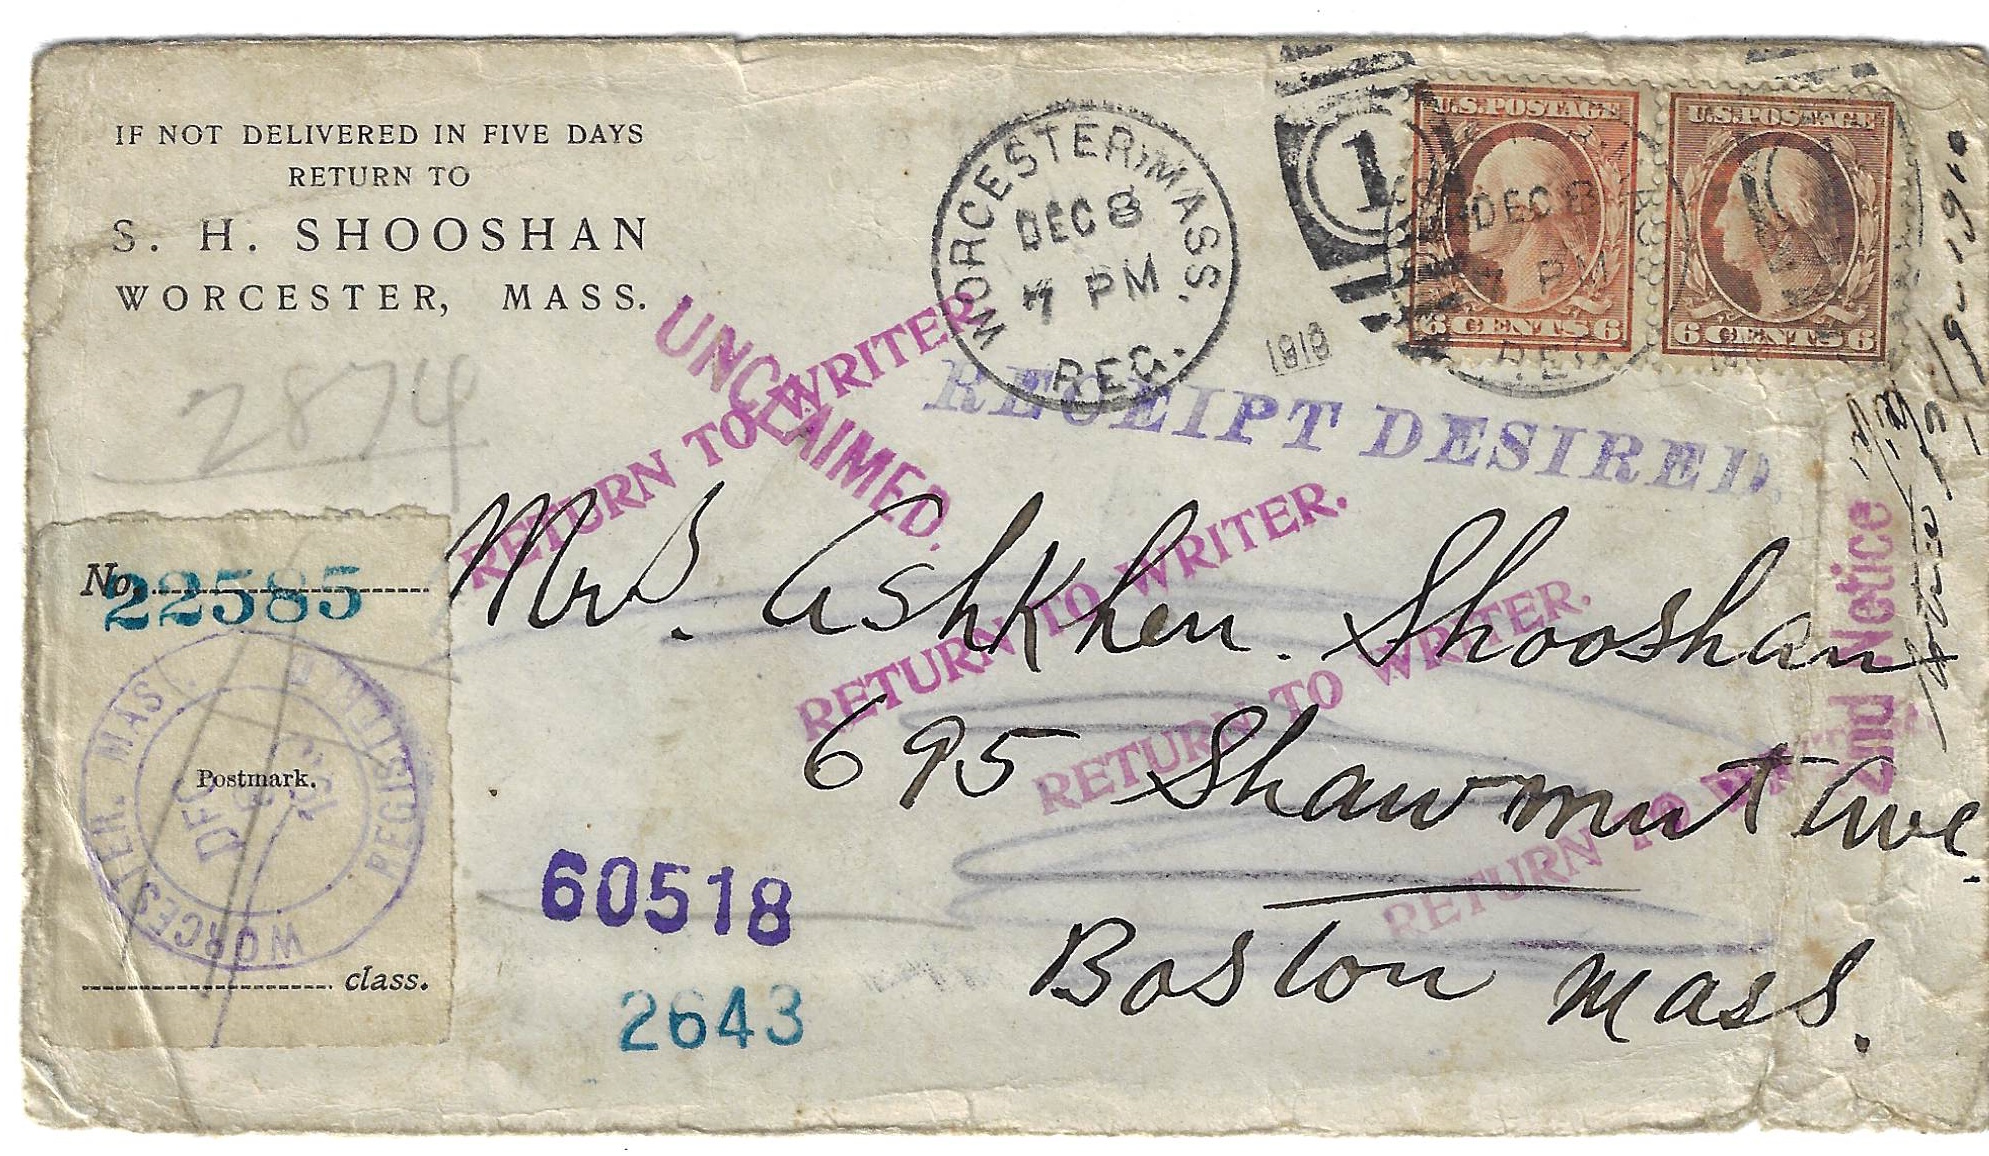 IF NOT DELIVERED IN FIVE DAYS
RETURN TO
S. H. SHOOSHAN
WORCESTER, MASS.
2874
WORCESTER, MASS.
DEC 8
7 PM
REG.
1
1918
U.S. POSTAGE
6 CENTS 6
U.S. POSTAGE
6 CENTS 6
DEC 8
7 PM
REG.
UNCLAIMED.
RETURN TO WRITER
RECEIPT DESIRED.
RETURN TO WRITER.
RETURN TO WRITER.
RETURN TO
2nd Notice
Mrs. Ashkhen. Shooshan
695 Shawmut Ave.
Boston Mass.
No. 22585
WORCESTER. MASS.
REGISTERED
DEC
8
Postmark.
class.
60518
2643